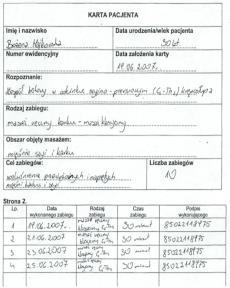 KARTA PACJENTA
Imię i nazwisko
Data urodzenia/wiek pacjenta
Bożena
30 lat
Numer ewidencyjny
Data założenia karty
19.06.2007.
Rozpoznanie:
Zespół bólowy w odcinku szyjno-piersiowym
Rodzaj zabiegu:
masaż ręczny karku - masaż klasyczny
Obszar objęty masażem:
mięśnie szyi i karku
Cel zabiegów:
Liczba zabiegów
rozluźnienie przeciążonych i napiętych
10
mięśni karku i szyi
Strona 2.
Lp.
Data wykonanego zabiegu
Rodzaj zabiegu
Czas zabiegu
Podpis wykonującego
1 19.06.2007. masaż ręczny klasyczny 30 minut 85022118975
2 21.06.2007 masaż ręczny klasyczny 30 minut 85022118975
3 23.06.2007 masaż ręczny klasyczny 30 minut 85022118975
4 25.06.2007 masaż ręczny klasyczny 30 minut 85022118975